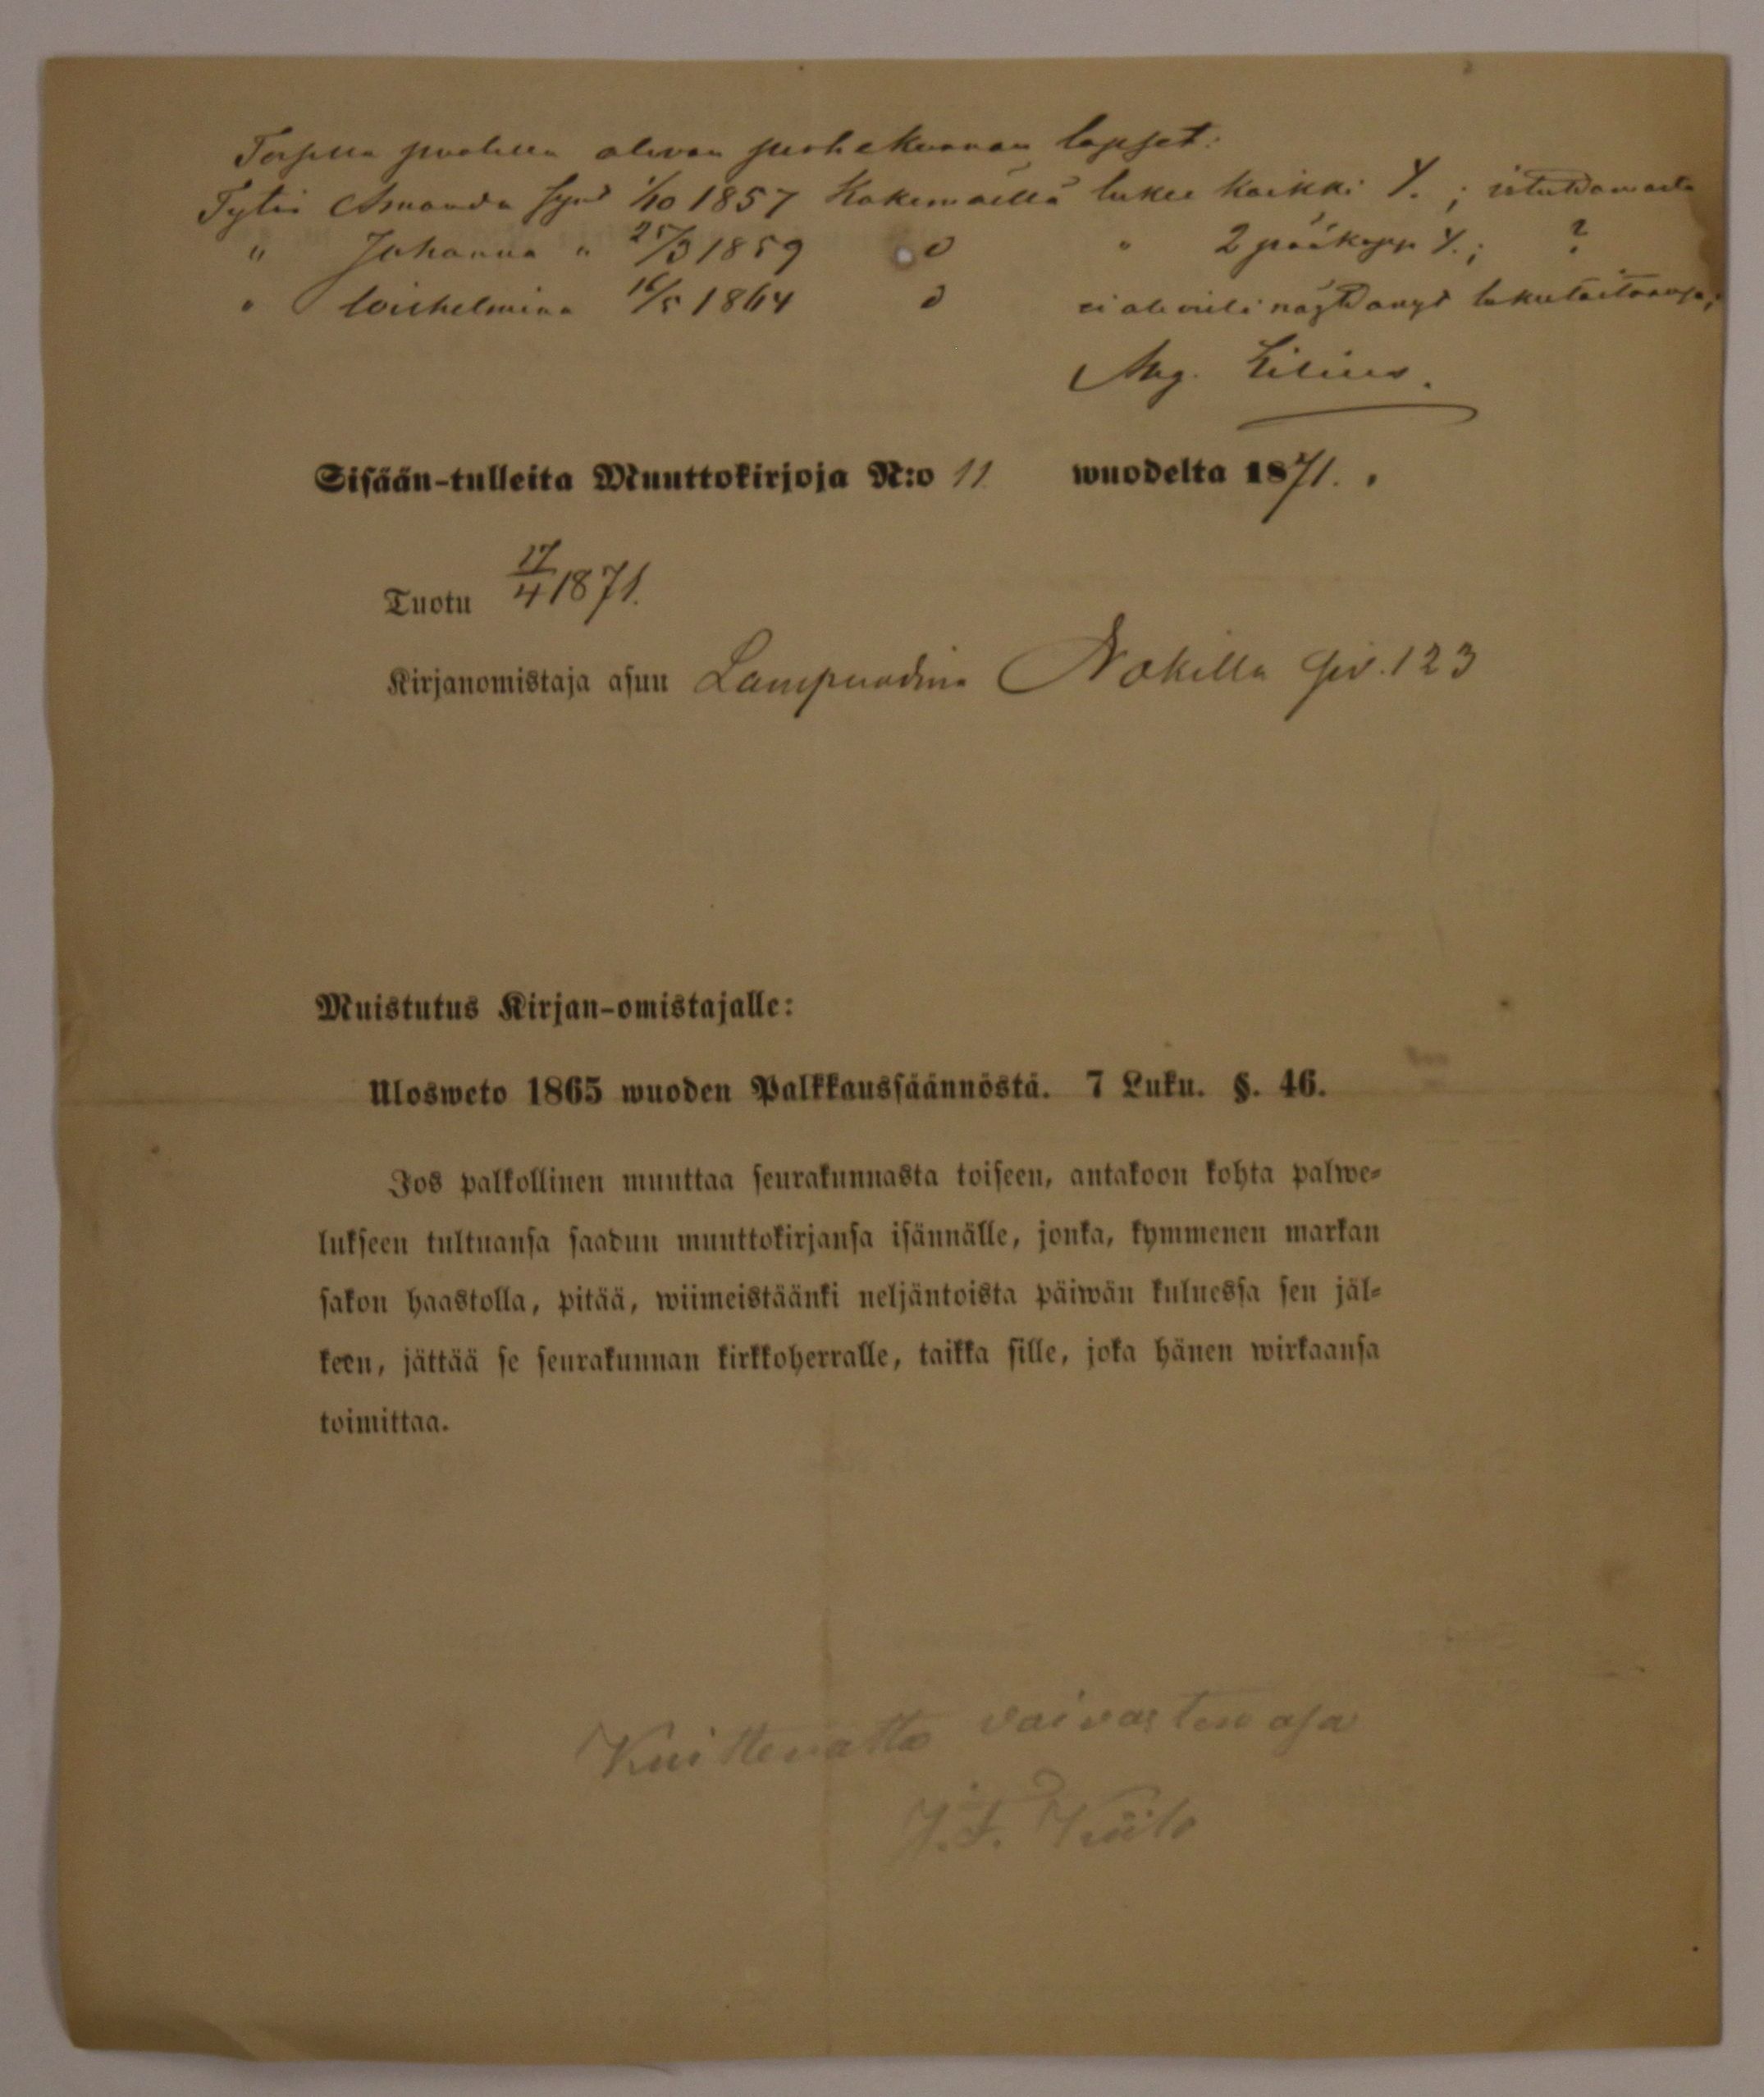 puolella olevan perhekunnan lapset:
Tytär Amanda synt 1/10 1857 Kokemäellä lukee kaikki Y. ; istuttamasta
" Johanna " 25/3 1859 d " 2 pääkapp Y. ; ?
" Wilhelmina 16/5 1864 d ei ole vielä näyttänyt lukutaitoansa;
Aug. Lilius.
Sisään-tulleita Muuttokirjoja N:o 11 wuodelta 1871.
Tuotu 17/4 1871.
Kirjanomistaja asuu Lampuodina Nokilla siv. 123
Muistutus Kirjan-omistajalle:
Ulosweto 1865 wuoden Palkkaussäännöstä. 7 Luku. §. 46.
Jos palkollinen muuttaa seurakunnasta toiseen, antakoon kohta palwe-
lukseen tultuansa saadun muuttokirjansa isännälle, jonka, kymmenen markan
sakon haastolla, pitää, wiimeistäänki neljäntoista päiwän kuluessa sen jäl-
keen, jättää se seurakunnan kirkkoherralle, taikka sille, joka hänen wirkaansa
toimittaa.
vaivasten
J. F.